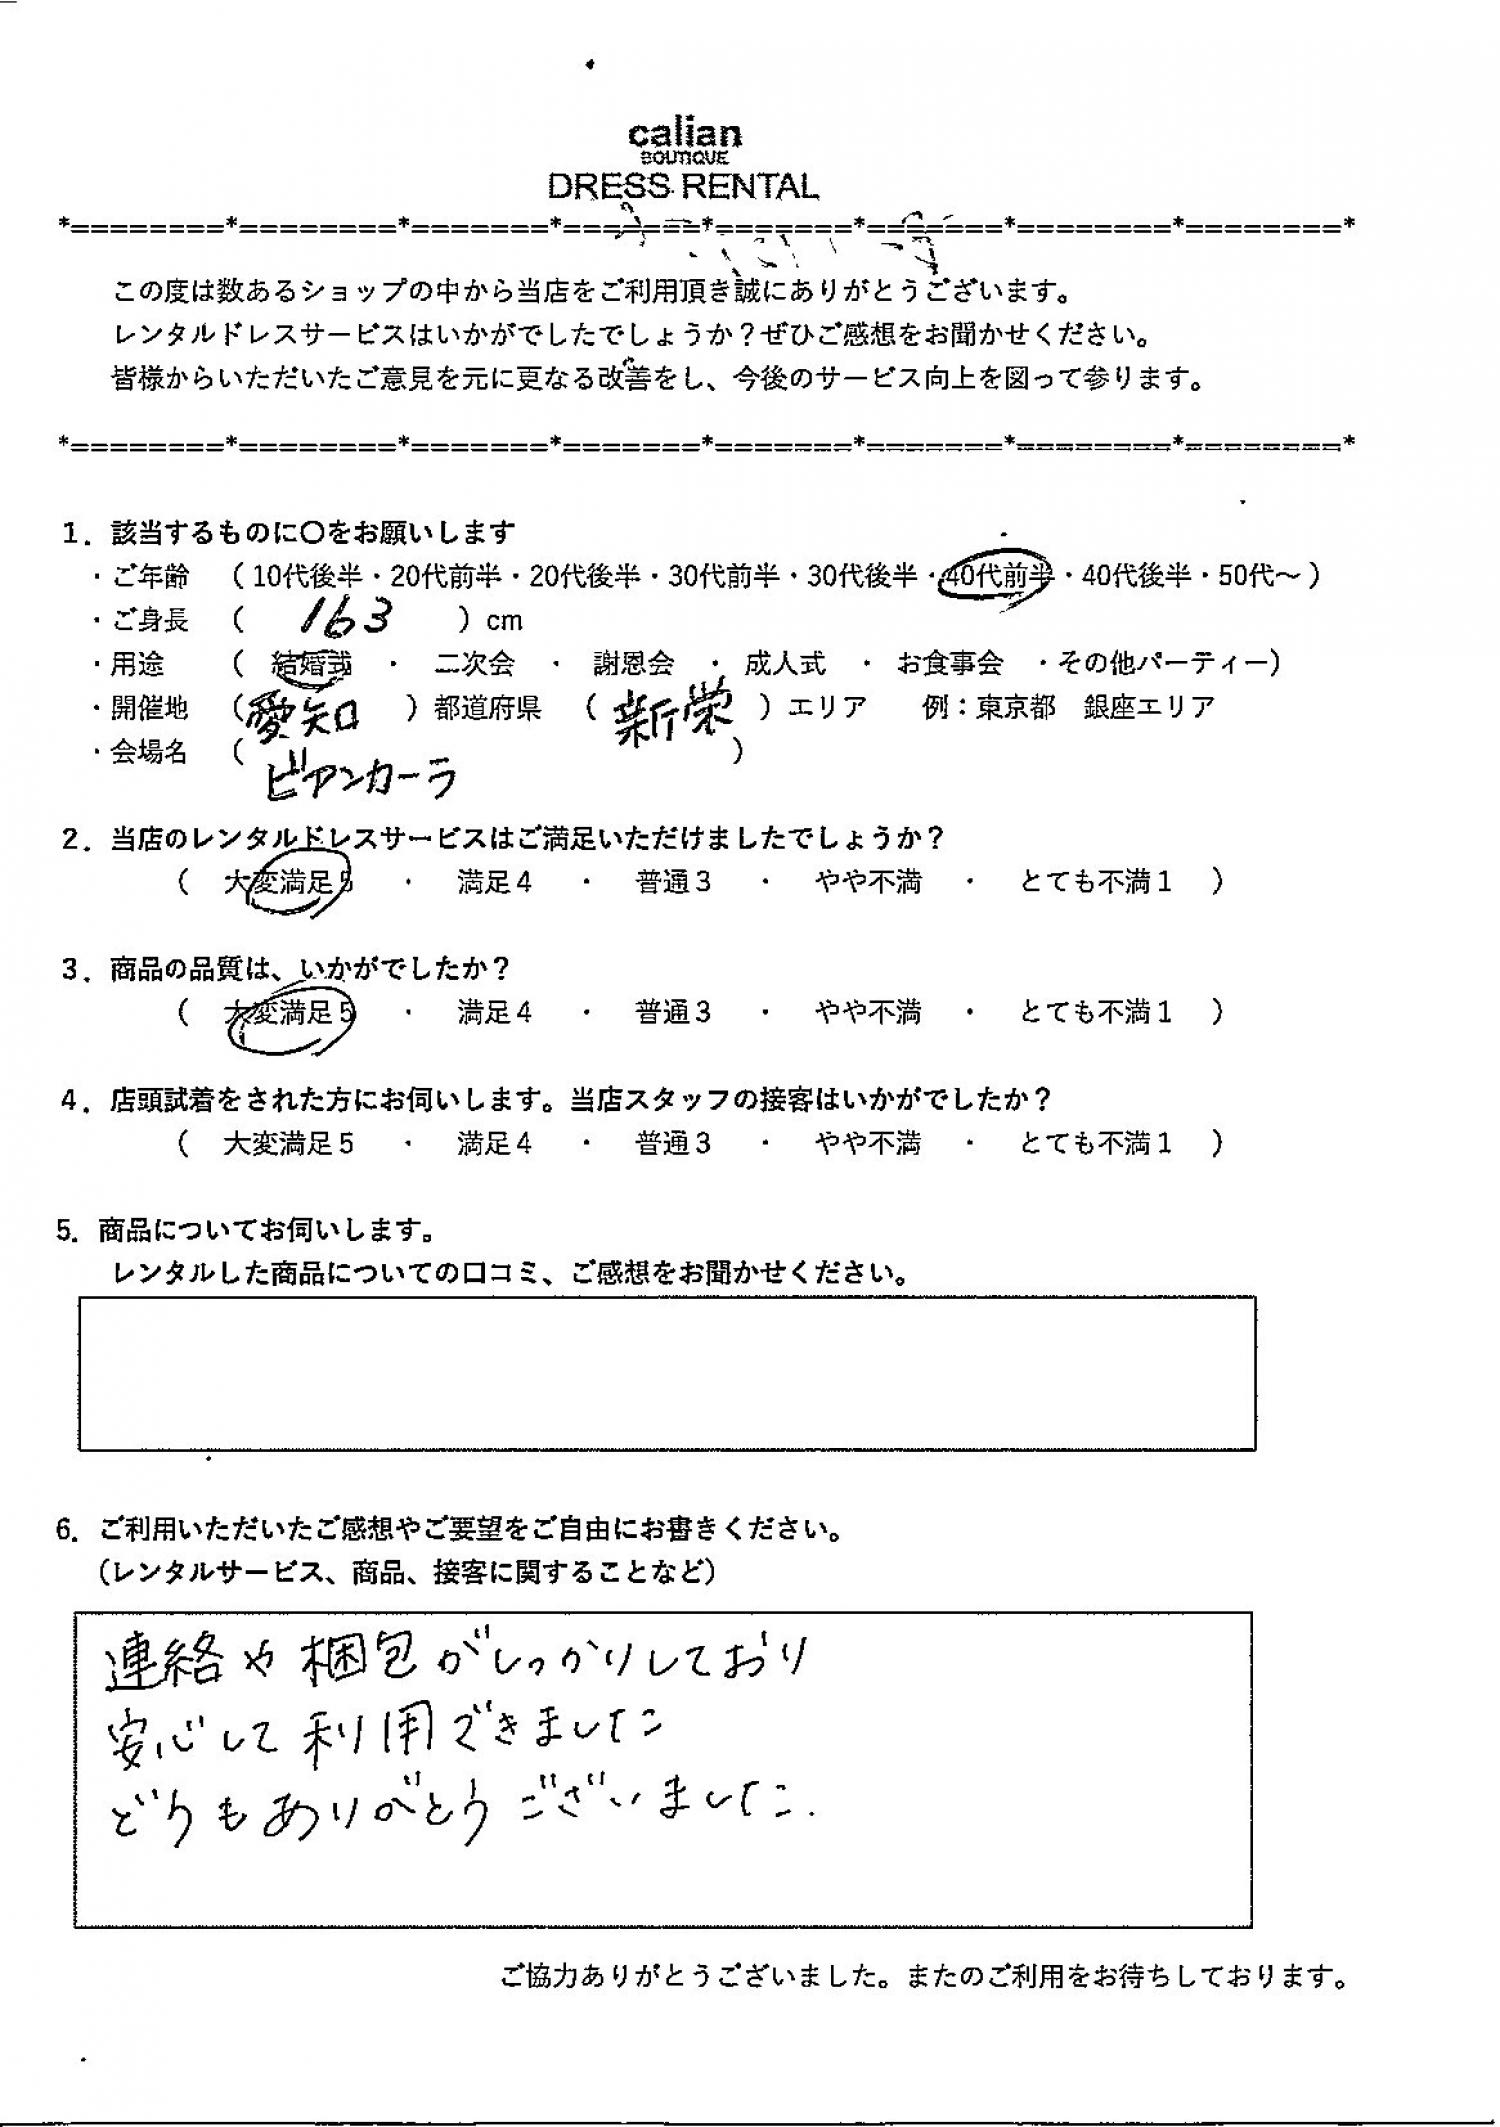 calian
BOUTIQUE
DRESS RENTAL
*========*========*=======*=======*=======*=======*========*========*
この度は数あるショップの中から当店をご利用頂き誠にありがとうございます。
レンタルドレスサービスはいかがでしたでしょうか？ぜひご感想をお聞かせください。
皆様からいただいたご意見を元に更なる改善をし、今後のサービス向上を図って参ります。
*========*========*=======*=======*=======*=======*========*========*
1．該当するものに〇をお願いします
・ご年齢 （10代後半・20代前半・20代後半・30代前半・30代後半・40代前半・40代後半・50代～）
・ご身長 （ 163 ）cm
・用途 （ 結婚式 ・ 二次会 ・ 謝恩会 ・ 成人式 ・ お食事会 ・その他パーティー）
・開催地 （愛知 ）都道府県 （ 新栄 ）エリア 例：東京都 銀座エリア
・会場名 （ ビアンカーラ ）
2．当店のレンタルドレスサービスはご満足いただけましたでしょうか？
（ 大変満足5 ・ 満足4 ・ 普通3 ・ やや不満 ・ とても不満1 ）
3．商品の品質は、いかがでしたか？
（ 大変満足5 ・ 満足4 ・ 普通3 ・ やや不満 ・ とても不満1 ）
4．店頭試着をされた方にお伺いします。当店スタッフの接客はいかがでしたか？
（ 大変満足5 ・ 満足4 ・ 普通3 ・ やや不満 ・ とても不満1 ）
5．商品についてお伺いします。
レンタルした商品についての口コミ、ご感想をお聞かせください。
6．ご利用いただいたご感想やご要望をご自由にお書きください。
（レンタルサービス、商品、接客に関することなど）
連絡や梱包がしっかりしており
安心して利用できました
どうもありがとうございました.
ご協力ありがとうございました。またのご利用をお待ちしております。